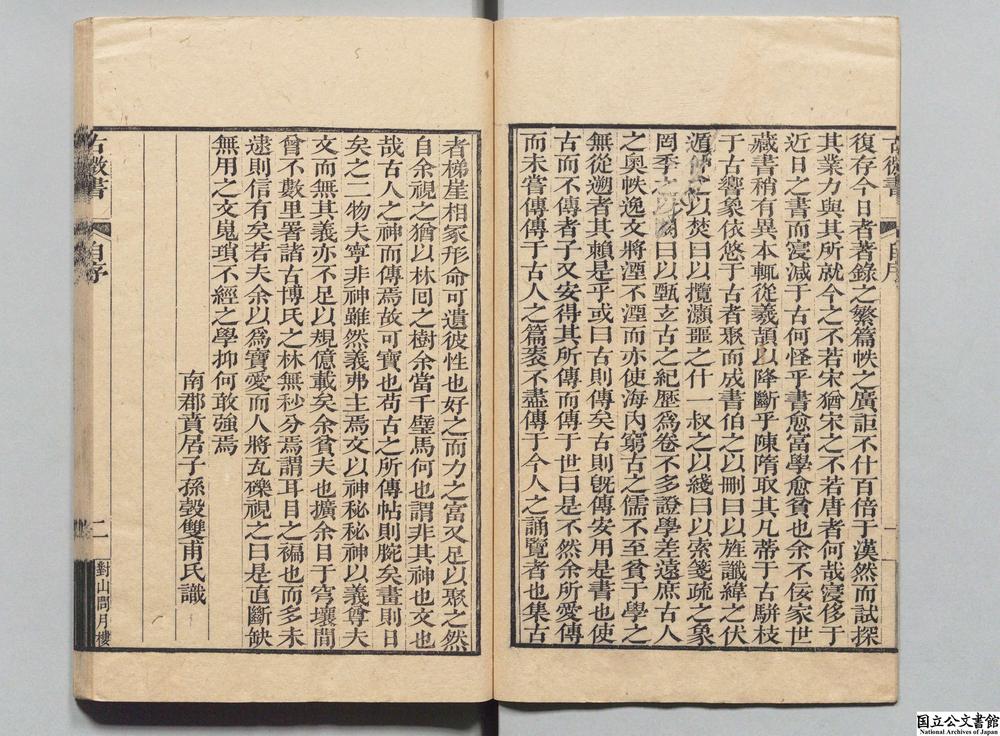 復存今日者著錄之繁篇帙之廣詎不什百倍于漢然而試探
其業力與其所就今之不若宋猶宋之不若唐者何哉寖侈于
近日之書而寖減于古何怪乎書愈富學愈貧也余不佞家世
藏書稍有異本輒從羲頡以降斷乎陳隋取其凡蒂于古駢枝
于古響象依悠于古者聚而成書伯之以刪曰以旌讖緯之伏
遁仲之以焚曰以攬灝噩之什一叔之以綫曰以索箋疏之象
罔季之以曰以甄玄古之紀歷爲卷不多證學差遠庶古人
之奧帙逸文將湮不湮而亦使海內窮古之儒不至貧于學之
無從遡者其賴是乎或曰古則傳矣古則旣傳安用是書也使
古而不傳者子又安得其所傳而傳于世曰是不然余所愛傳
而未嘗傳傳于古人之篇袠不盡傳于今人之誦覽者也集古
古微書
自序
者梯崖相冢形命可遺彼性也好之而力之富又足以聚之然
自余視之猶以林回之樹余當千璧馬何也謂非其神也文也
哉古人之神而傳焉故可寶也苟古之所傳帖則腕矣畫則目
矣之二物夫寧非神雖然義弗主焉文以神秘秘神以義尊夫
文而無其義亦不足以規億載矣余貧夫也擴余目于穹壤間
曾不數里署諸古博氏之林無秒分焉謂耳目之褊也而多未
逮則信有矣若夫余以爲寶愛而人將瓦礫視之曰是直斷缺
無用之文嵬瑣不經之學抑何敢強焉
南郡賁居子孫瑴雙甫氏識
古微書
自序
二
對山問月樓
国立公文書館
National Archives of Japan